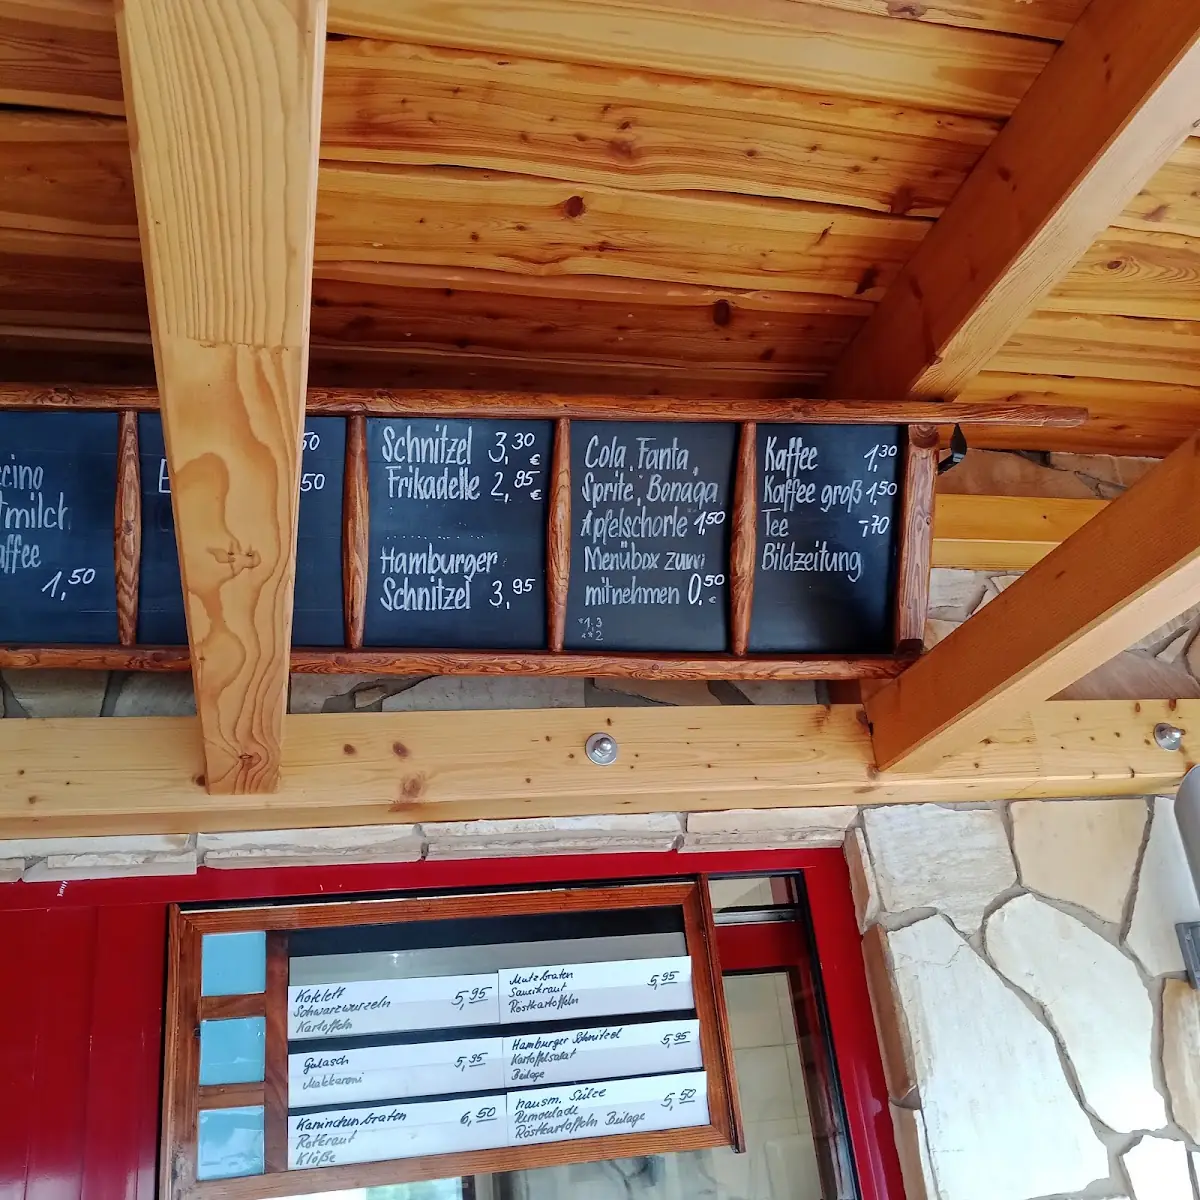 cino
milch
affee
1,50
50
50
Schnitzel 3,30 €
Frikadelle 2,95 €
Hamburger
Schnitzel 3,95
Cola, Fanta,
Sprite, Bonaqa
Apfelschorle 1,50
Menübox zum
mitnehmen 0,50 €
*1,3
**2
Kaffee 1,30
Kaffee groß 1,50
Tee -,70
Bildzeitung
Kotelett 5,95
Schwarzwurzeln
Kartoffeln
Mutzbraten 5,95
Sauerkraut
Röstkartoffeln
Gulasch 5,95
Makkaroni
Hamburger Schnitzel 5,95
Kartoffelsalat
Beilage
Kaninchenbraten 6,50
Rotkraut
Klöße
hausm. Sülze 5,50
Remoulade
Röstkartoffeln Beilage